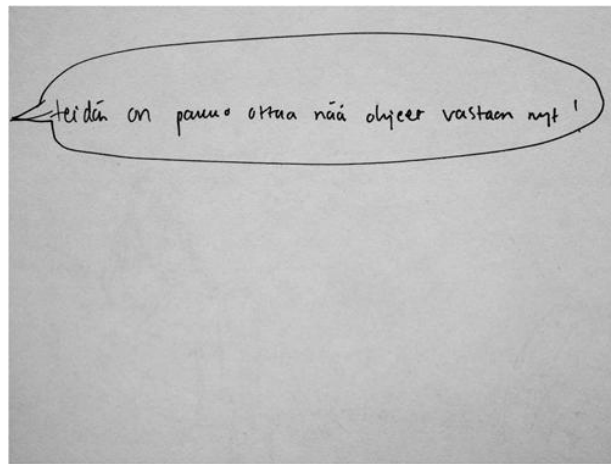 teidän on pakko ottaa nää ohjeet vastaan nyt!